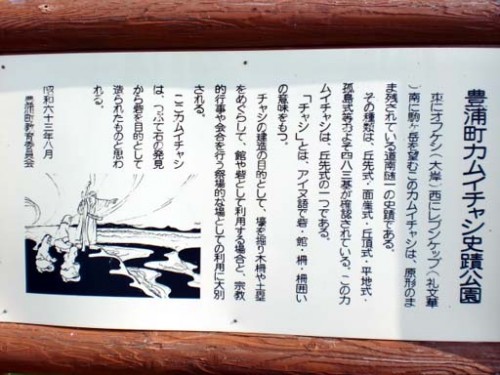 豊浦町カムイチャシ史蹟公園
東にオフケシ(大岸)西にレブンケップ(礼文華
)南に駒ヶ岳を望むこのカムイチャシは、原形のま
ま残されている道南随一の史蹟である。
その種類は、丘先式・面崖式・丘頂式・平地式・
孤島式等およそ四八三基が確認されている。この力
ムイチャシは、丘先式の一つである。
「チャシ」とは、アイヌ語で砦・館・柵・柵囲い
の意味をもつ。
チャシの建造の目的として、壕を掘り木柵や土塁
をめぐらして、館や砦として利用する場合と、宗教
的行事や会合を行う祭場的な場としての利用に大別
される。
ここカムイチャシ
は、つぶて石の発見
から砦を目的として
造られたものと思わ
れる。
昭和六十三年八月
豊浦町教育委員会